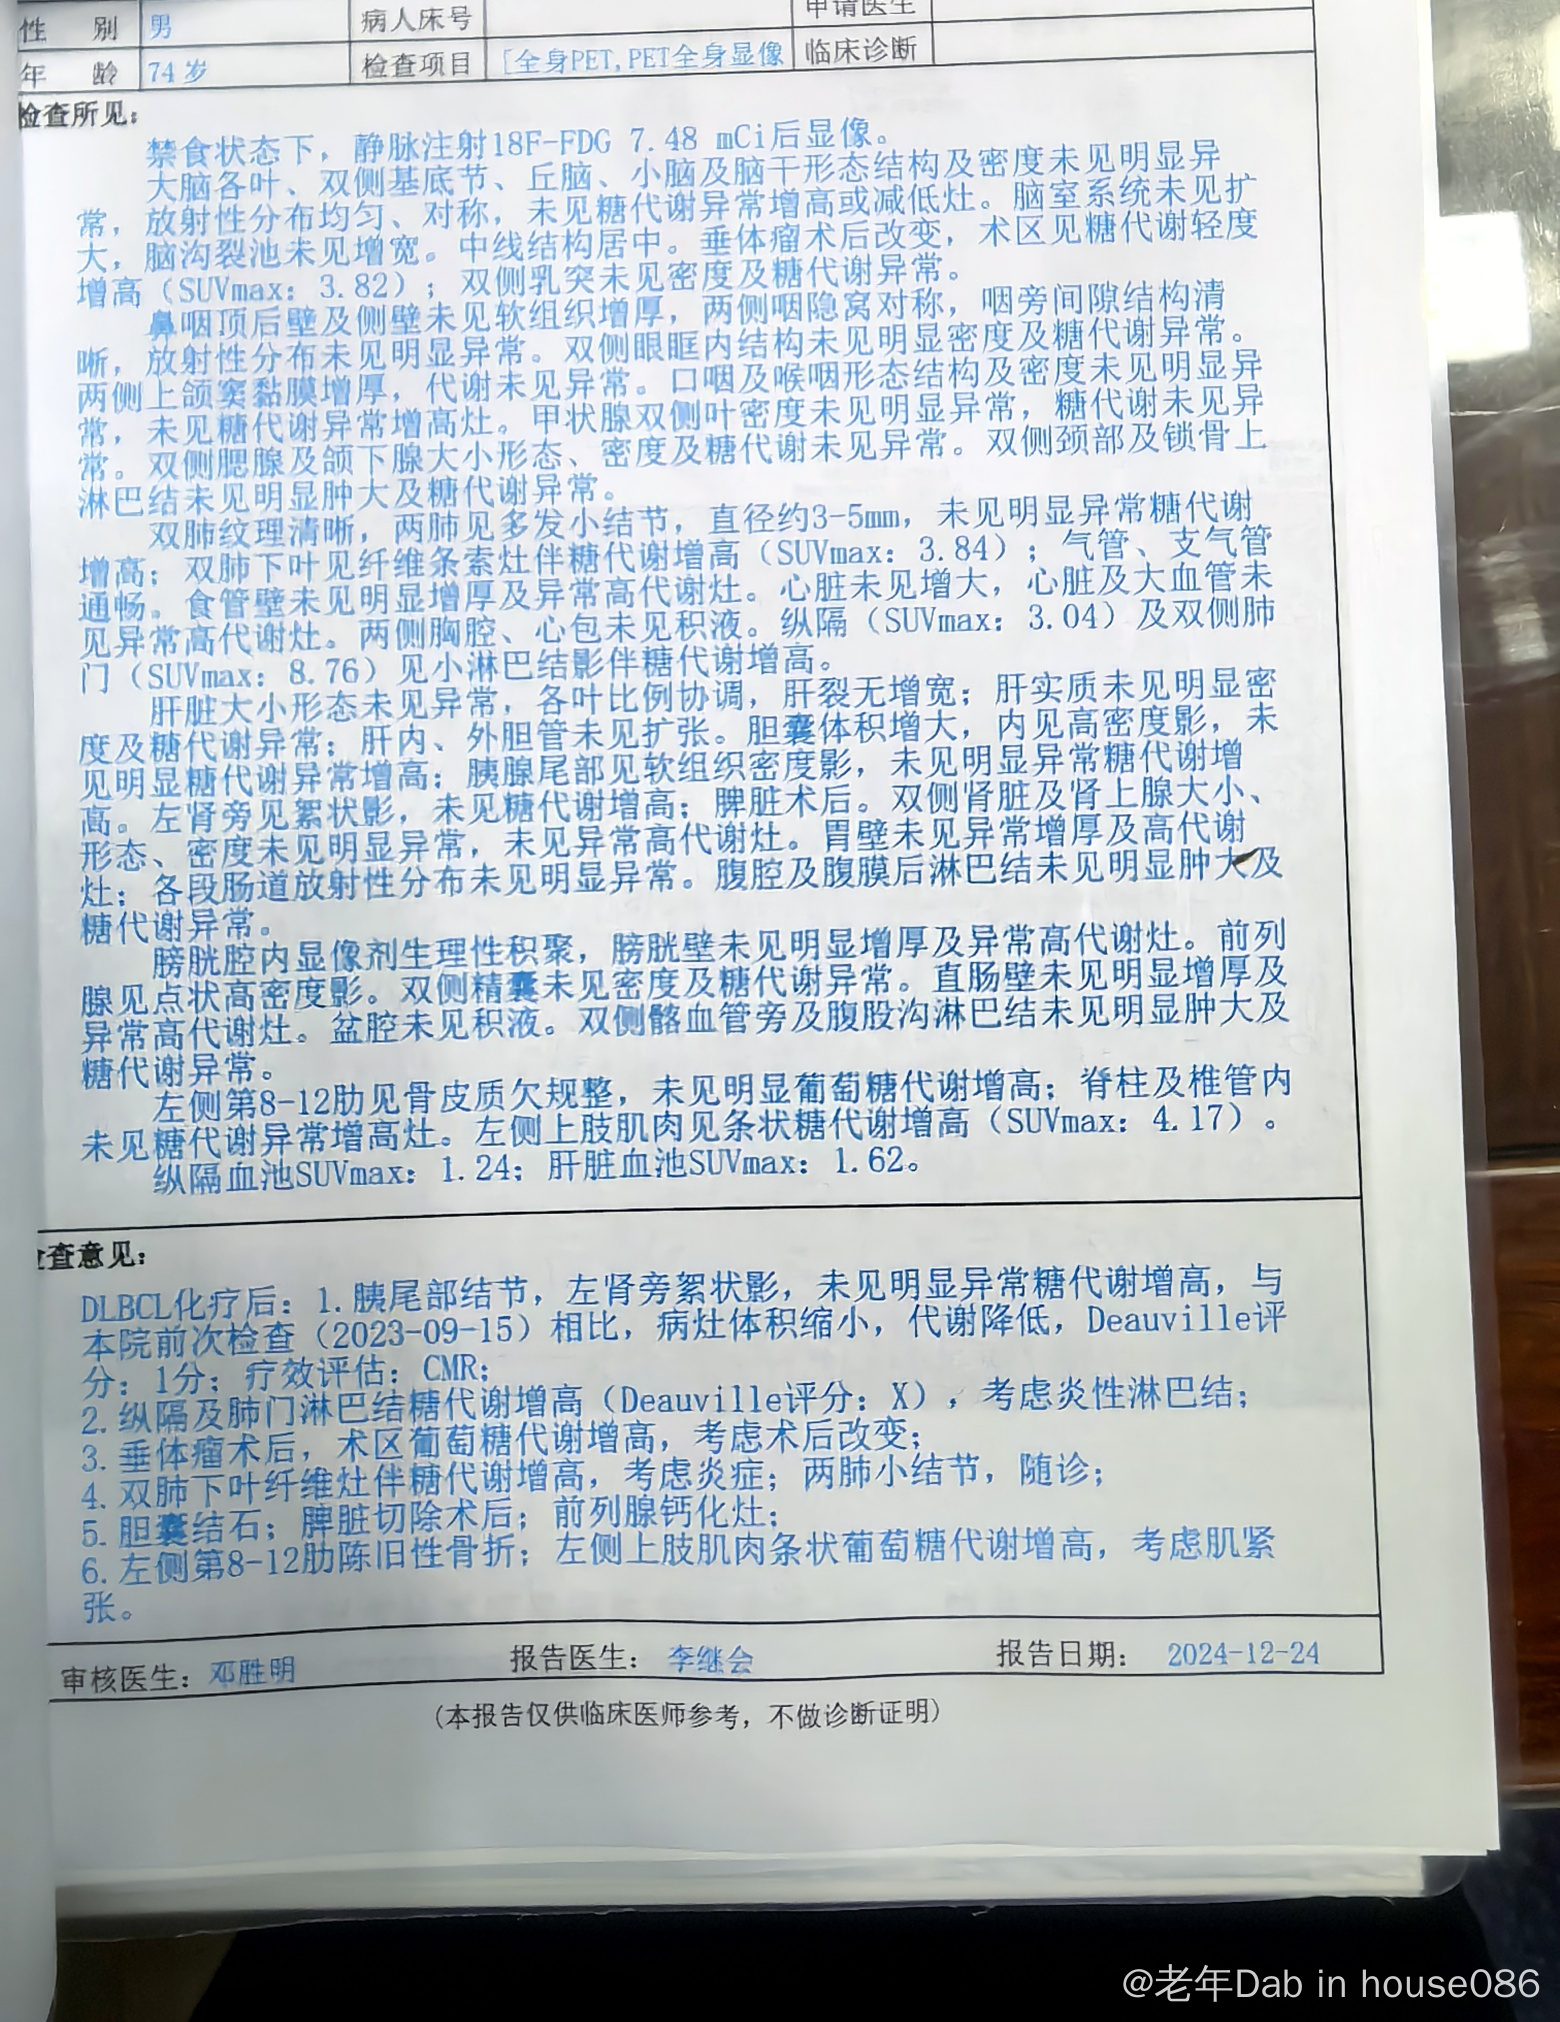 性 别 男 病人床号 申请医生
年 龄 74 岁 检查项目 [全身PET,PET全身显像 临床诊断
检查所见:
禁食状态下,静脉注射18F-FDG 7.48 mCi后显像。
大脑各叶、双侧基底节、丘脑、小脑及脑干形态结构及密度未见明显异
常,放射性分布均匀、对称,未见糖代谢异常增高或减低灶。脑室系统未见扩
大,脑沟裂池未见增宽。中线结构居中。垂体瘤术后改变,术区见糖代谢轻度
增高(SUVmax: 3.82);双侧乳突未见密度及糖代谢异常。
鼻咽顶后壁及侧壁未见软组织增厚,两侧咽隐窝对称,咽旁间隙结构清
晰,放射性分布未见明显异常。双侧眼眶内结构未见明显密度及糖代谢异常。
两侧上颌窦黏膜增厚,代谢未见异常。口咽及喉咽形态结构及密度未见明显异
常,未见糖代谢异常增高灶。甲状腺双侧叶密度未见明显异常,糖代谢未见异
常。双侧腮腺及颌下腺大小形态、密度及糖代谢未见异常。双侧颈部及锁骨上
淋巴结未见明显肿大及糖代谢异常。
双肺纹理清晰,两肺见多发小结节,直径约3-5mm,未见明显异常糖代谢
增高;双肺下叶见纤维条索灶伴糖代谢增高(SUVmax: 3.84);气管、支气管
通畅。食管壁未见明显增厚及异常高代谢灶。心脏未见增大,心脏及大血管未
见异常高代谢灶。两侧胸腔、心包未见积液。纵隔(SUVmax: 3.04)及双侧肺
门(SUVmax: 8.76)见小淋巴结影伴糖代谢增高。
肝脏大小形态未见异常,各叶比例协调,肝裂无增宽;肝实质未见明显密
度及糖代谢异常;肝内、外胆管未见扩张。胆囊体积增大,内见高密度影,未
见明显糖代谢异常增高;胰腺尾部见软组织密度影,未见明显异常糖代谢增
高。左肾旁见絮状影,未见糖代谢增高;脾脏术后。双侧肾脏及肾上腺大小、
形态、密度未见明显异常,未见异常高代谢灶。胃壁未见异常增厚及高代谢
灶;各段肠道放射性分布未见明显异常。腹腔及腹膜后淋巴结未见明显肿大及
糖代谢异常。
膀胱腔内显像剂生理性积聚,膀胱壁未见明显增厚及异常高代谢灶。前列
腺见点状高密度影。双侧精囊未见密度及糖代谢异常。直肠壁未见明显增厚及
异常高代谢灶。盆腔未见积液。双侧髂血管旁及腹股沟淋巴结未见明显肿大及
糖代谢异常。
左侧第8-12肋见骨皮质欠规整,未见明显葡萄糖代谢增高;脊柱及椎管内
未见糖代谢异常增高灶。左侧上肢肌肉见条状糖代谢增高(SUVmax: 4.17)。
纵隔血池SUVmax: 1.24;肝脏血池SUVmax: 1.62。
查意见:
DLBCL化疗后: 1.胰尾部结节,左肾旁絮状影,未见明显异常糖代谢增高,与
本院前次检查(2023-09-15)相比,病灶体积缩小,代谢降低,Deauville评
分: 1分;疗效评估: CMR;
2.纵隔及肺门淋巴结糖代谢增高(Deauville评分: X),考虑炎性淋巴结;
3.垂体瘤术后,术区葡萄糖代谢增高,考虑术后改变;
4.双肺下叶纤维灶伴糖代谢增高,考虑炎症;两肺小结节,随诊;
5.胆囊结石;脾脏切除术后;前列腺钙化灶;
6.左侧第8-12肋陈旧性骨折;左侧上肢肌肉条状葡萄糖代谢增高,考虑肌紧
张。
审核医生: 邓胜明 报告医生: 李继会 报告日期: 2024-12-24
(本报告仅供临床医师参考,不做诊断证明)
@老年Dab in house086